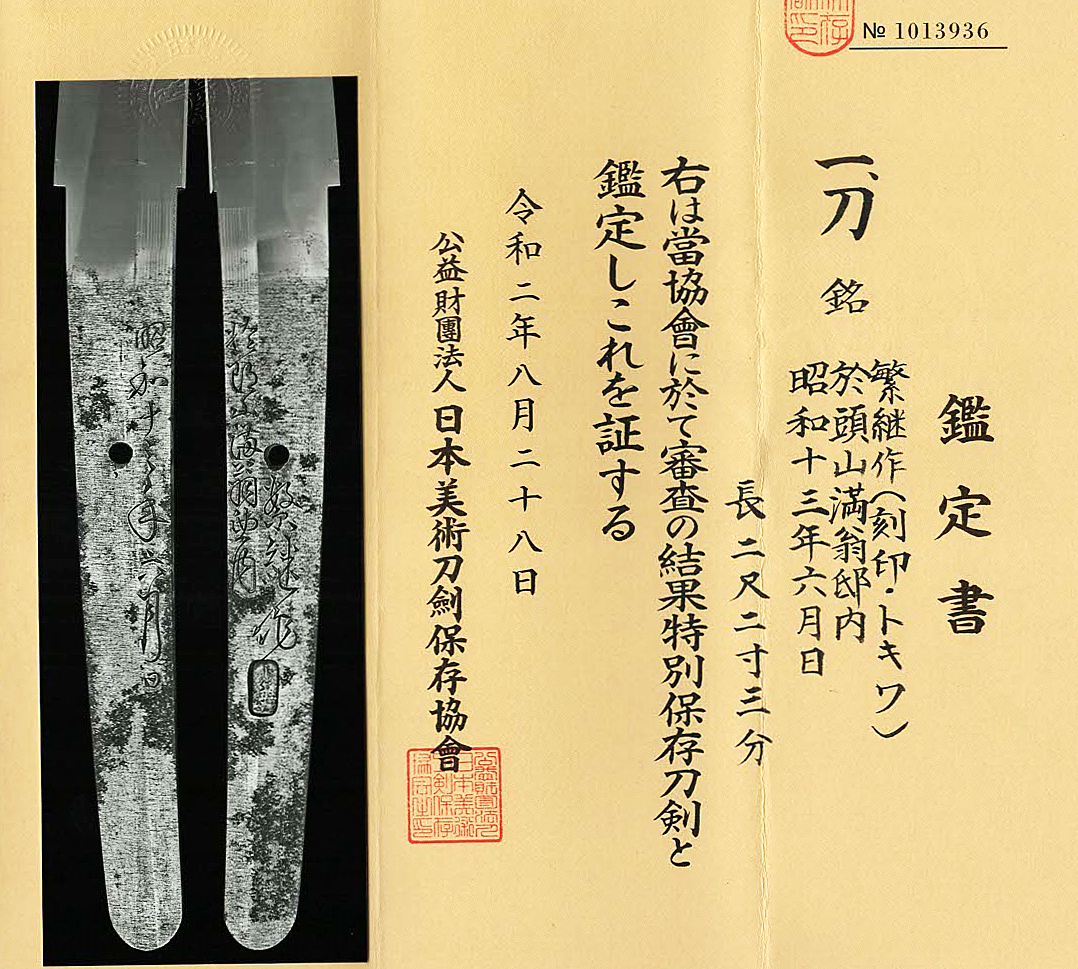 № 1013936
鑑定書
一、刀 銘
繁継作(刻印・トキワ)
於頭山満翁邸内
昭和十三年六月日
長二尺二寸三分
右は當協會に於て審査の結果特別保存刀剣と
鑑定しこれを証する
令和二年八月二十八日
公益財團法人 日本美術刀劍保存協會
於頭山満翁邸内
繁継作
昭和十三年六月日